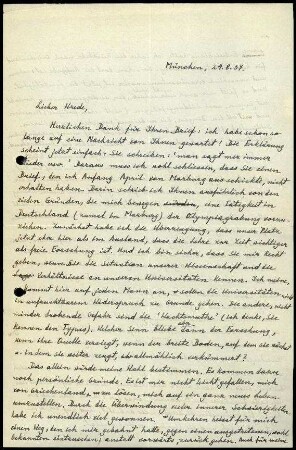 München, 29.8.37.
Lieber Wrede,
Herzlichen Dank für Ihren Brief: ich habe schon so
lange auf eine Nachricht von Ihnen gewartet! Die Erklärung
scheint jetzt einfach: Sie schreiben: "man sagt mir immer
wieder usw." Daraus muss ich wohl schliessen, dass Sie einen
Brief, den ich Anfang April von Marburg aus schickte, nicht
erhalten haben. Darin schrieb ich Ihnen ausführlich von den
vielen Gründen, die mich bewegen, eine Tätigkeit in
Deutschland (zumal in Marburg) der Olympiagrabung vorzu-
ziehen. Zunächst habe ich die Überzeugung, dass unser Platz
jetzt eher hier als im Ausland, dass die Lehre zur Zeit wichtiger
als freie Forschung ist. Und ich bin sicher, dass Sie mir Recht
geben, wenn Sie die Situation unserer Wissenschaft und die
Verhältnisse an unseren Universitäten kennen. Ich meine,
es kommt hier auf jeden Mann an, sollen die Universitäten nicht
in unfruchtbarem Widerspruch zu Grunde gehen. Die andere, nicht
minder drohende Gefahr sind die "Nichtwisser" (ich denke, Sie
kennen den Typus). Welcher Sinn bliebe dann der Forschung,
wenn ihre Quelle versiegt, wenn der breite Boden, auf dem sie wächst
in dem sie weiter zeugt, so allmählich verkümmert?
Das allein würde meine Wahl bestimmen. Es kommen davon
noch persönliche Gründe. Es ist mir nicht leicht gefallen, mich
von Griechenland, man lösen, mich auf ein ganz neues Leben
umzustellen. Durch die Überwindung vieler innerer Schwierigkeiten
habe ich unendlich viel gewonnen. Umkehren heisst für mich
einen Weg, den ich mir gebahnt habe, gegen einen ausgetretenen, wohl
bekannten eintauschen; anstatt vorwärts, zurück gehen. Auch für meine